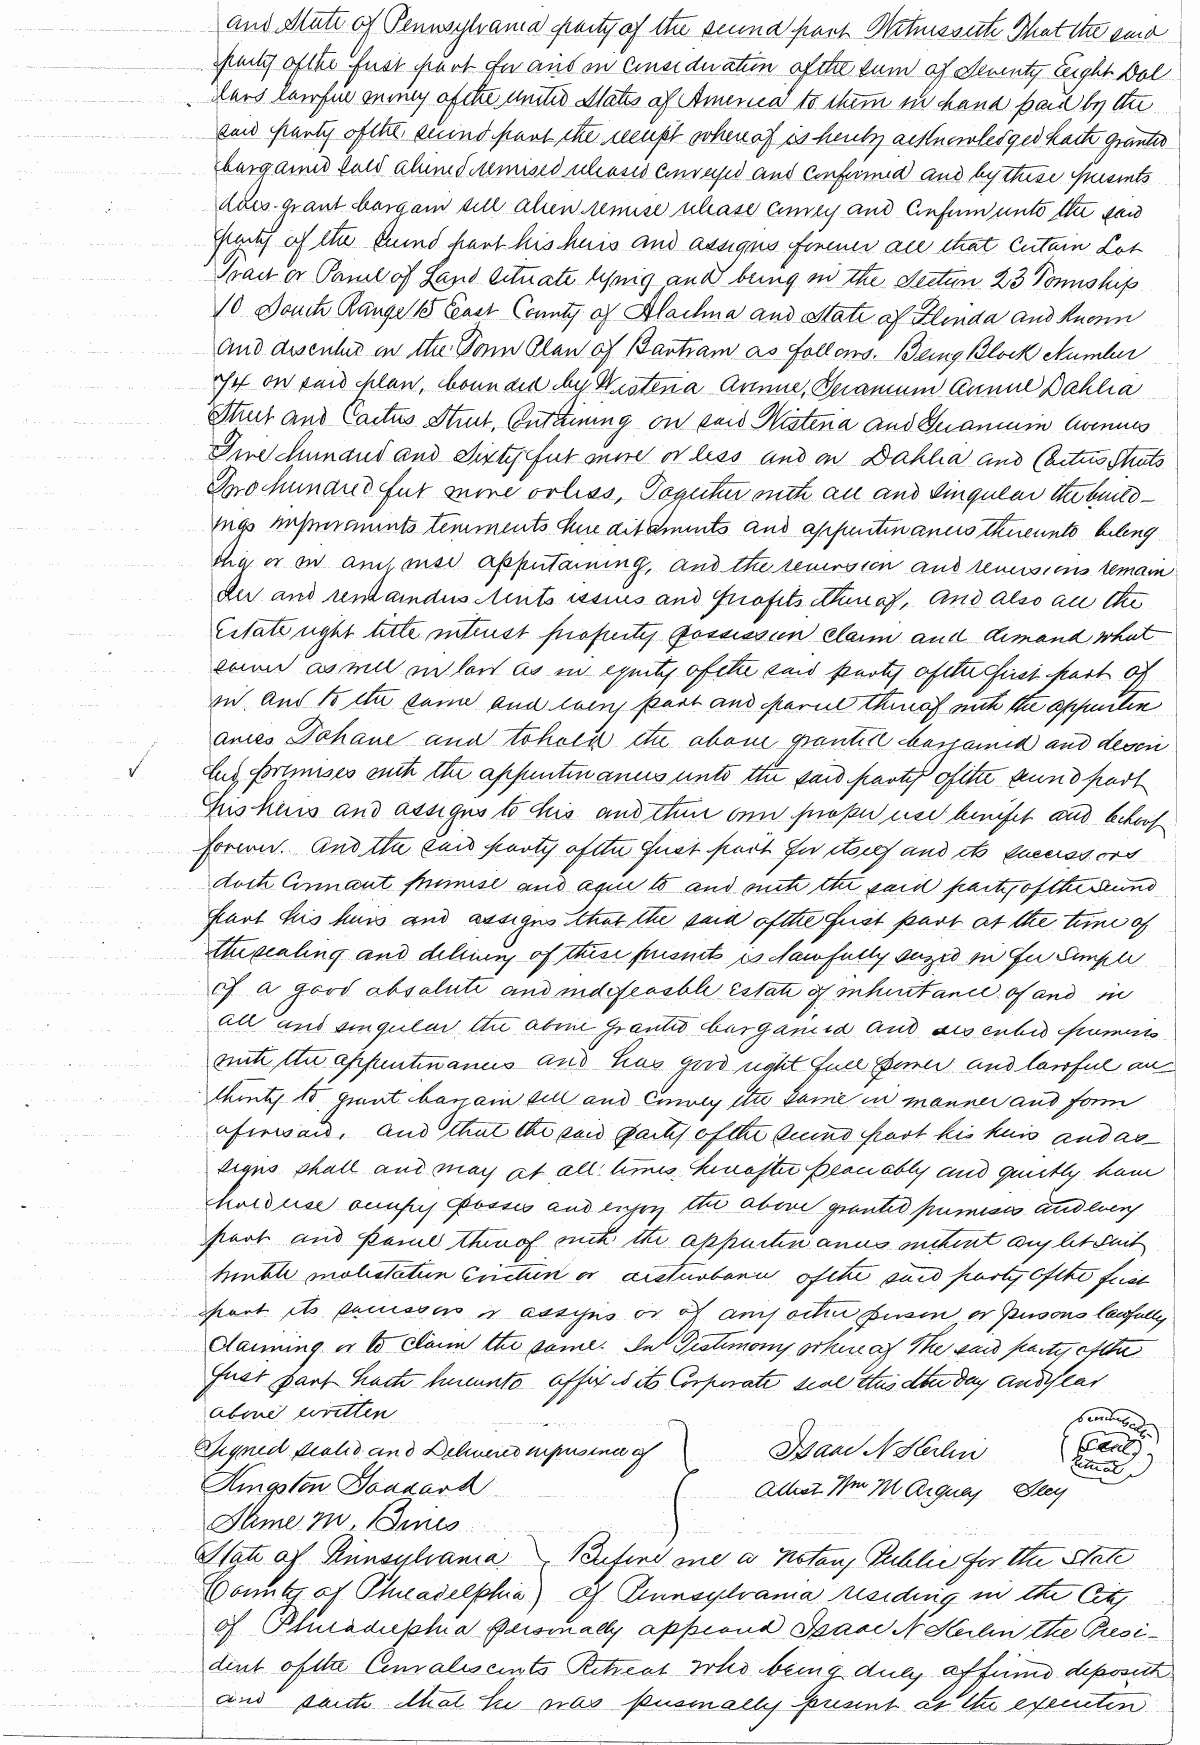 and State of Pennsylvania party of the second part Witnesseth That the said
party of the first part for and in consideration of the sum of Seventy Eight Dol
lars lawful money of the United States of America to them in hand paid by the
said party of the second part the receipt whereof is hereby acknowledged hath granted
bargained sold aliened remised released conveyed and confirmed and by these presents
does grant bargain sell alien remise release convey and confirm unto the said
party of the second part his heirs and assigns forever all that certain Lot
Tract or Parcel of Land situate lying and being in the Section 23 Township
10 South Range 15 East County of Alachua and State of Florida and known
and described on the Town Plan of Bartram as follows. Being Block Number
on said plan, bounded by Wisteria Avenue, Geranium Avenue Dahlia
Street and Cactus Street, Containing on said Wisteria and Geranium Avenues
Five hundred and Sixty feet more or less and on Dahlia and Cactus Streets
Two hundred feet more or less, Together with all and singular the build-
ings improvements tenements hereditaments and appurtenances thereunto belong
ing or in any wise appertaining, and the reversion and reversions remain
der and remainders rents issues and profits thereof, And also all the
Estate right title interest property possession claim and demand what
soever as well in law as in equity of the said party of the first part of
in and to the same and every part and parcel thereof with the appurten
ances To have and to hold the above granted bargained and descri
bed premises with the appurtenances unto the said party of the second part
his heirs and assigns to his and their own proper use benefit and behoof
forever. And the said party of the first part for itself and its successors
doth Covenant promise and agree to and with the said party of the second
part his heirs and assigns that the said of the first part at the time of
the sealing and delivery of these presents is lawfully seized in fee simple
of a good absolute and indefeasible Estate of inheritance of and in
all and singular the above granted bargained and described premises
with the appurtenances and has good right full power and lawful au
thority to grant bargain sell and convey the same in manner and form
aforesaid, and that the said party of the second part his heirs and as-
signs shall and may at all times hereafter peaceably and quietly have
hold use occupy possess and enjoy the above granted premises and every
part and parcel thereof with the appurtenances without any let suit
trouble molestation Eviction or disturbance of the said party of the first
part its successors or assigns or of any other person or persons lawfully
claiming or to claim the same. In Testimony whereof The said party of the
first part hath hereunto affixed its Corporate seal this the day and year
above written
Signed sealed and Delivered in presence of Isaac N Kerlin Seal
Kingston Goddard Attest Wm M Secy
M. Bines
State of Pennsylvania } Before me a Notary Public for the State
County of Philadelphia } of Pennsylvania residing in the City
of Philadelphia personally appeared Isaac N Kerlin the Presi-
dent of the Convalescents Retreat who being duly affirmed deposeth
and saith that he was personally present at the execution